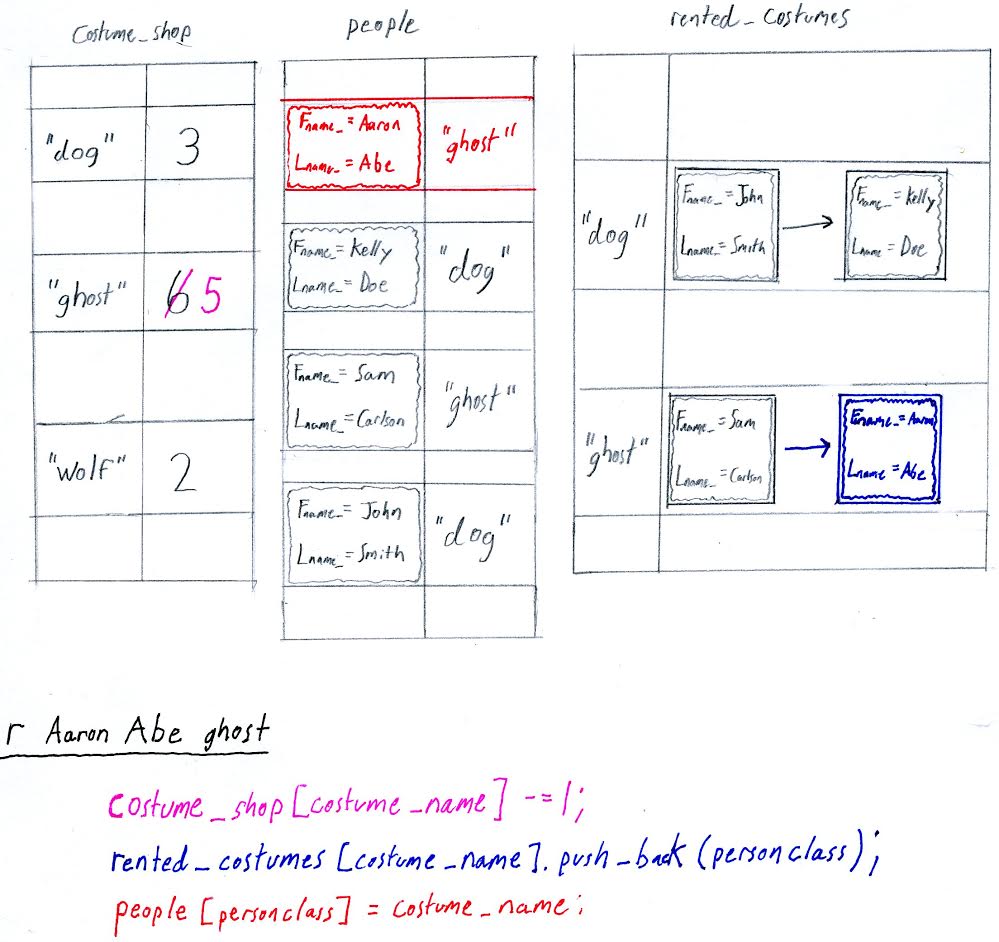 Costume_shop
people
rented_costumes
"dog" 3
"ghost" 6 5
"wolf" 2
Fname_ = Aaron
Lname_ = Abe
"ghost"
Fname_ = Kelly
Lname_ = Doe
"dog"
Fname_ = Sam
Lname_ = Carlson
"ghost"
Fname_ = John
Lname_ = Smith
"dog"
"dog"
Fname_ = John
Lname_ = Smith
Fname_ = Kelly
Lname_ = Doe
"ghost"
Fname_ = Sam
Lname_ = Carlson
Fname_ = Aaron
Lname_ = Abe
r Aaron Abe ghost
costume_shop[costume_name] -=1;
rented_costumes[costume_name].push_back(personclass);
people[personclass] = costume_name;